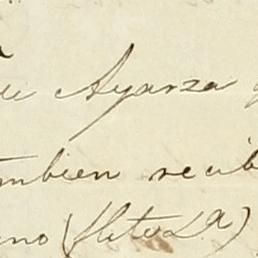 Ayarza
mbien recib
no (flete La)